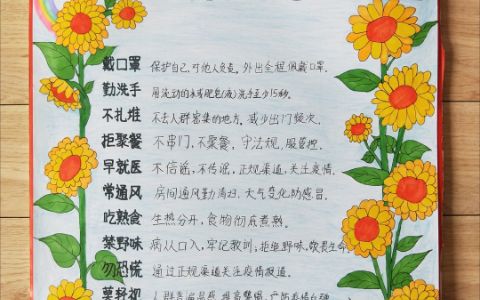 戴口罩 保护自己,对他人负责。外出全程佩戴口罩.
勤洗手 用流动的水和肥皂(液)洗手至少15秒.
不扎堆 不去人群密集的地方,减少出门频次.
拒聚餐 不串门,不聚餐,守法规,服管控.
早就医 不信谣,不传谣,正规渠道,关注疫情.
常通风 房间通风勤清扫,天气变化防感冒.
吃熟食 生熟分开,食物彻底煮熟.
禁野味 病从口入,牢记教训;拒绝野味,敬畏生命.
勿恐慌 通过正规渠道关注疫情报道.
莫轻视